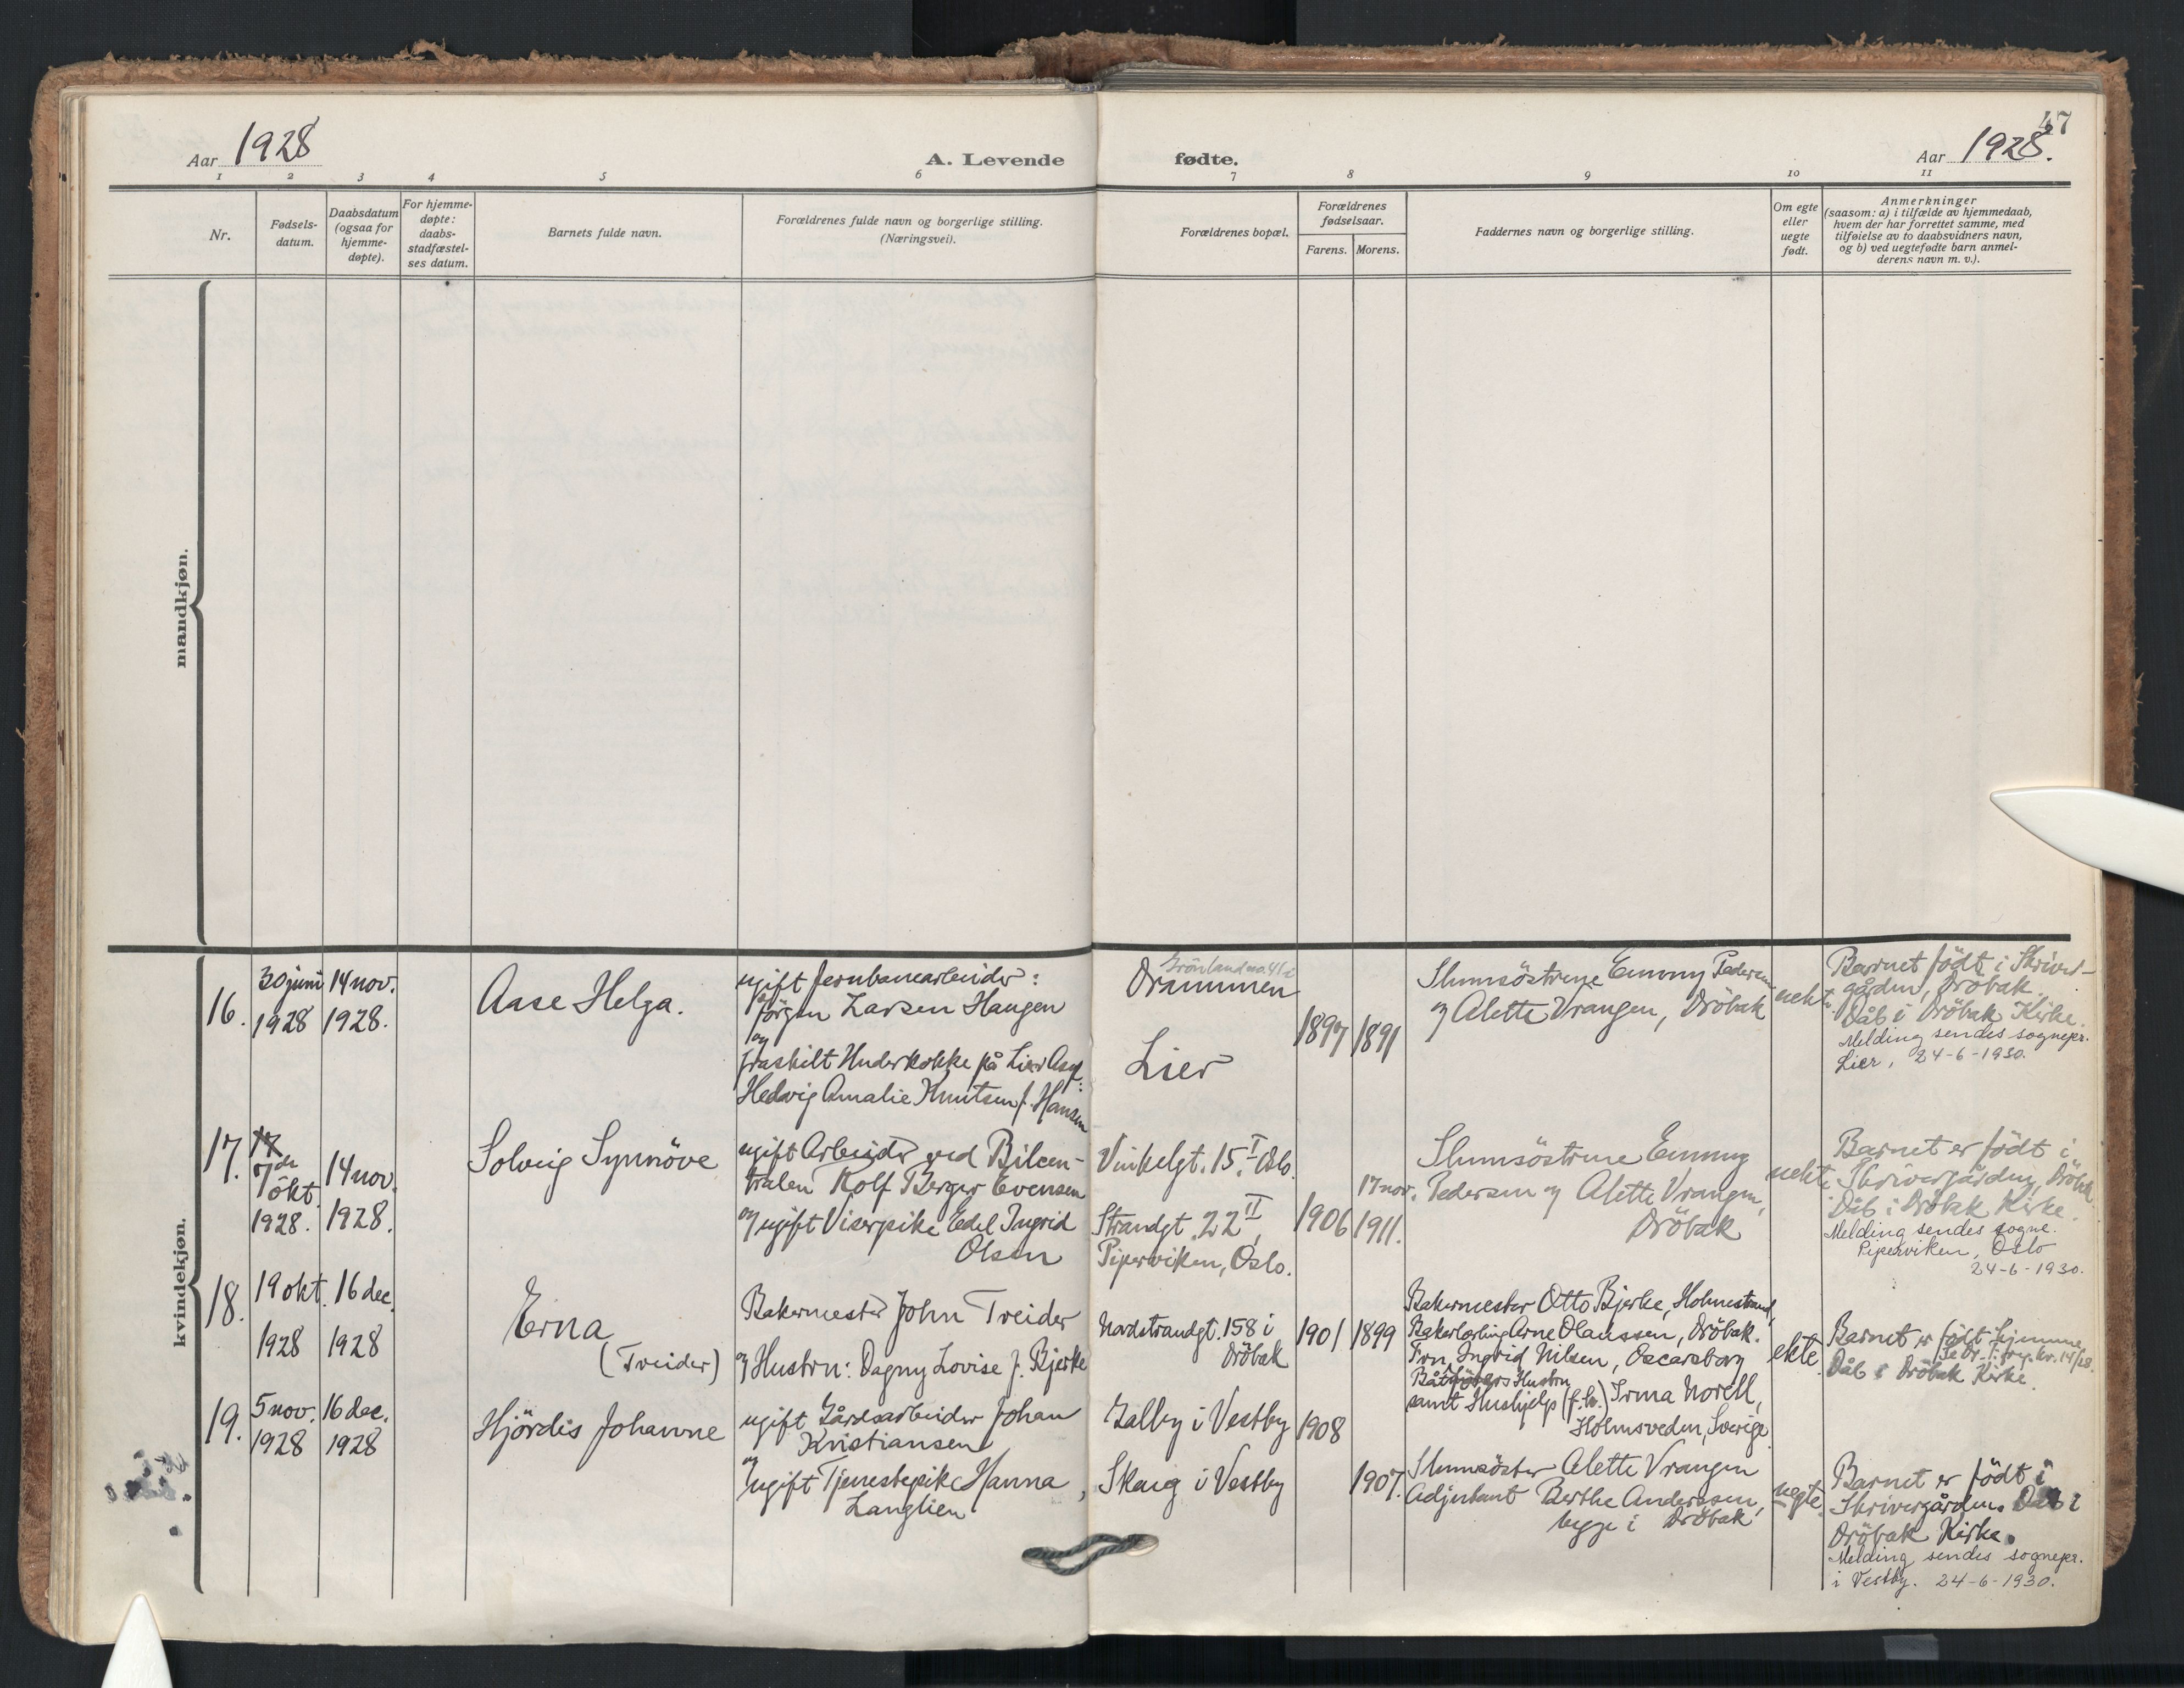 47
Aar 1928
A. Levende
fødte.
Aar 1928.
1 2 3 4 5 6 7 8 9 10 11
Nr.
Fødsels-
datum.
Daabsdatum
(ogsaa for
hjemme-
døpte).
For hjemme-
døpte:
daabs-
stadfæstel-
ses datum.
Barnets fulde navn.
Forældrenes fulde navn og borgerlige stilling.
(Næringsvei).
Forældrenes bopæl.
Forældrenes
fødselsaar.
Farens. Morens.
Faddernes navn og borgerlige stilling.
Om egte
eller
uegte
født.
Anmerkninger
(saasom: a) i tilfælde av hjemmedaab,
hvem der har forrettet samme, med
tilføielse av to daabsvidners navn,
og b) ved uegtefødte barn anmel-
derens navn m. v.).
mandkjøn.
kvindekjøn.
16.
30 juni
1928
14 nov.
1928.
Aase Helga.
ugift Jernbanearbeider:
Jörgen Larsen Haugen
og
fraskilt Underkokke på Lier Asyl:
Hedvig Amalie Knutsen f. Hansen
Grönland no. 41
Drammen
Lier
1897
1891
Slumsöstrene Emmy Pedersen
og Alette Vrangen, Dröbak
uekte
Barnet födt i Skriver-
gården, Dröbak.
Dåb i Dröbak Kirke.
Melding sendes sognepr.
Lier, 24-6-1930.
17.
7de
okt.
1928.
14 nov.
1928.
Solveig Synnöve
ugift Arbeider ved Bilcen-
tralen Rolf Berger Evensen
og ugift Viserpike Edel Ingrid
Olsen
Vinkelgt. 15 I Oslo.
Strandgt. 22 II,
Piperviken, Oslo.
1906
17 nov.
1911.
Slumsöstrene Emmy
Pedersen og Alette Vrangen,
Dröbak
uekte
Barnet er födt i
Skrivergården, Dröbak.
Dåb i Dröbak Kirke.
Melding sendes sogne.
Piperviken, Oslo
24-6-1930.
18.
19 okt.
1928
16 dec.
1928
Erna
(Treider)
Bakermester John Treider
og Hustru: Dagny Lovise f. Bjerke
Nordstrandgt. 158 i
Dröbak
1901
1899
Bakermester Otto Bjerke, Holmestrand,
Bakerlærling Arne Olaussen, Dröbak.
Fru Ingrid Nilsen, Oscarsborg
Båtförers Hustru
samt Hushjelp (f.h.) Irma Norell,
Holmsveden, Sverige.
ekte.
Barnet er födt hjemme
Se Dr. f. reg. nr. 14/28.
Dåb i Dröbak Kirke.
19.
5 nov.
1928
16 dec.
1928
Hjördis Johanne
ugift Gårdsarbeider Johan
Kristiansen
og
ugift Tjenestepike Hanna
Langlien
Galby i Vestby
Skaug i Vestby
1908
1907.
Slumsöster Alette Vrangen
Adjutant Berthe Anderssen,
begge i Dröbak
uegte.
Barnet er födt i
Skrivergården. Dåb i
Dröbak Kirke.
Melding sendes sognepr.
i Vestby. 24-6-1930.